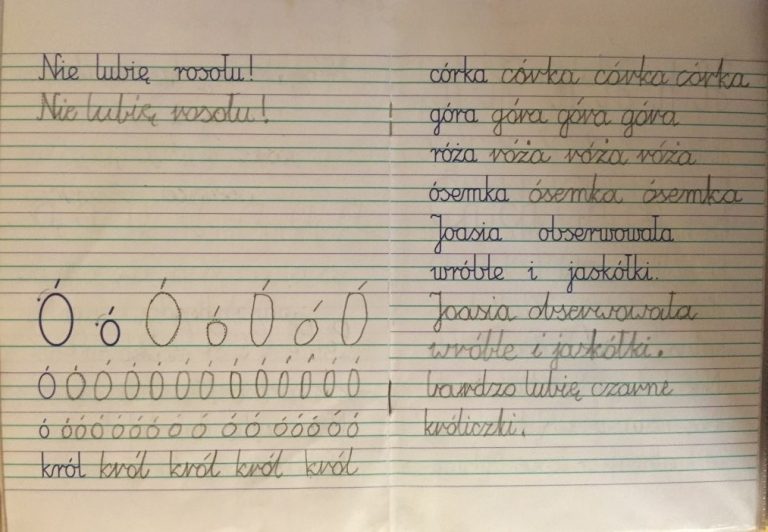 Nie lubię rosołu!
Nie lubię rosołu!
Ó ó Ó ó Ó ó Ó
Ó Ó Ó Ó Ó Ó Ó Ó Ó Ó Ó Ó Ó
ó óóó ó ó ó ó ó ó ó óóó ó ó
król król król król król
córka córka córka córka
góra góra góra góra
róża róża róża róża
ósemka ósemka ósemka
Joasia obserwowała
wróble i jaskółki.
Joasia obserwowała
wróble i jaskółki.
bardzo lubię czarne
króliczki.